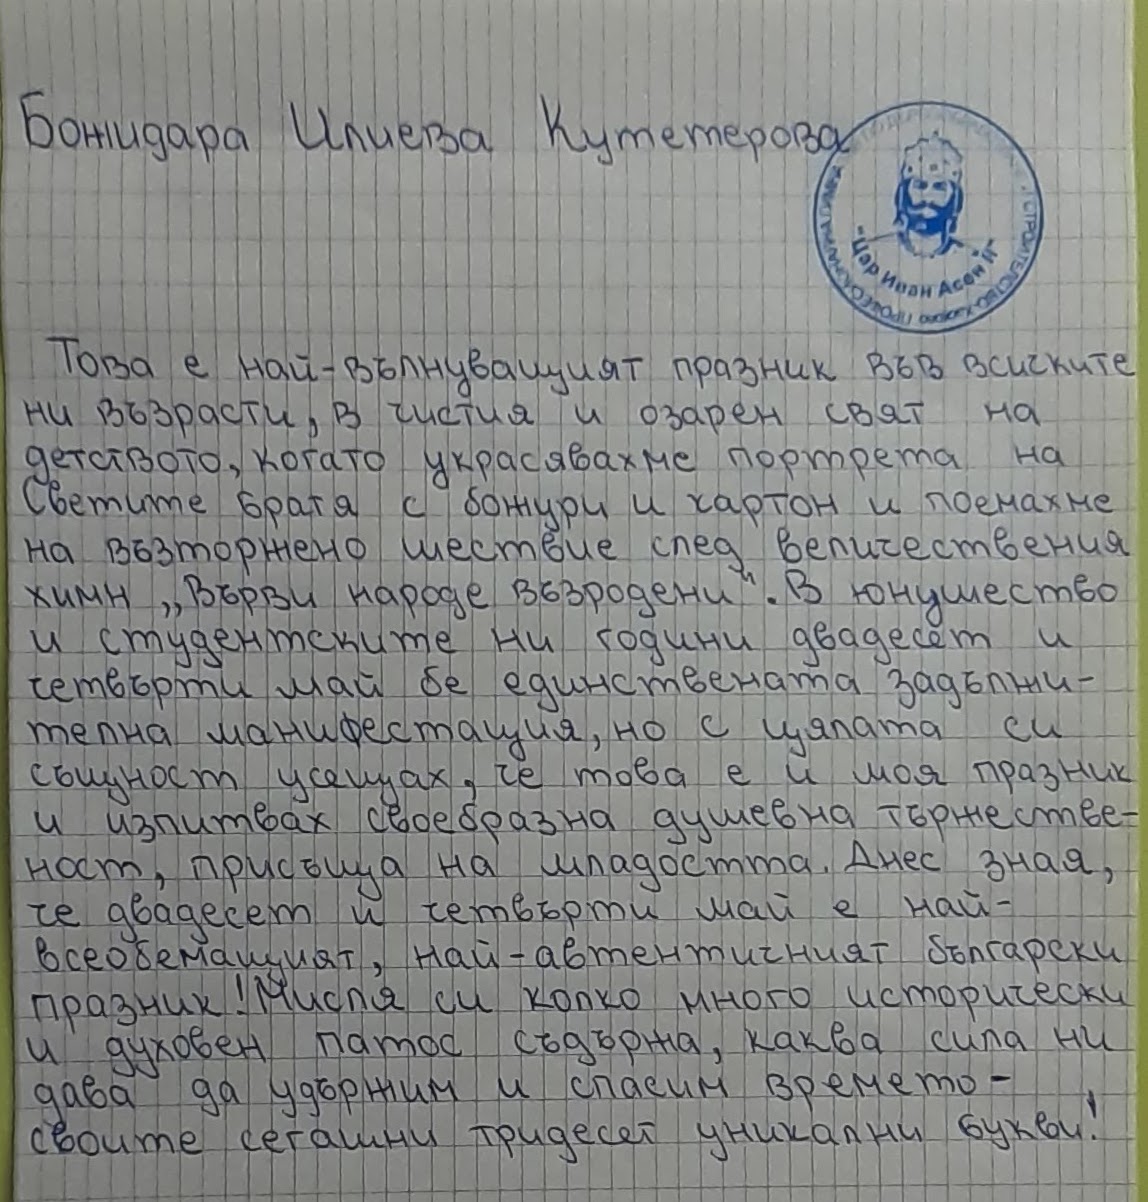 Божидара Илиева Кутетерова
"Цар Иван Асен II"
СТРОИТЕЛСТВО
Това е най-вълнуващият празник във всичките
ни възрасти, в чистия и озарен свят на
детството, когато украсявахме портрета на
Светите братя с божури и картон и поемахме
на възторжено шествие след величествения
химн „Върви народе възродени". В юнушество
и студентските ни години двадесет и
четвърти май бе единствената задължи-
телна манифестация, но с цялата си
същност усещах, че това е и моя празник
и изпитвах своебразна душевна тържестве-
ност, присъща на младостта. Днес зная,
че двадесет и четвърти май е най-
всеобемащият, най-автентичният български
празник! Мисля си колко много исторически
и духовен патос съдържа, каква сила ни
дава да удържим и спасим времето-
своите сегашни тридесет уникални букви!